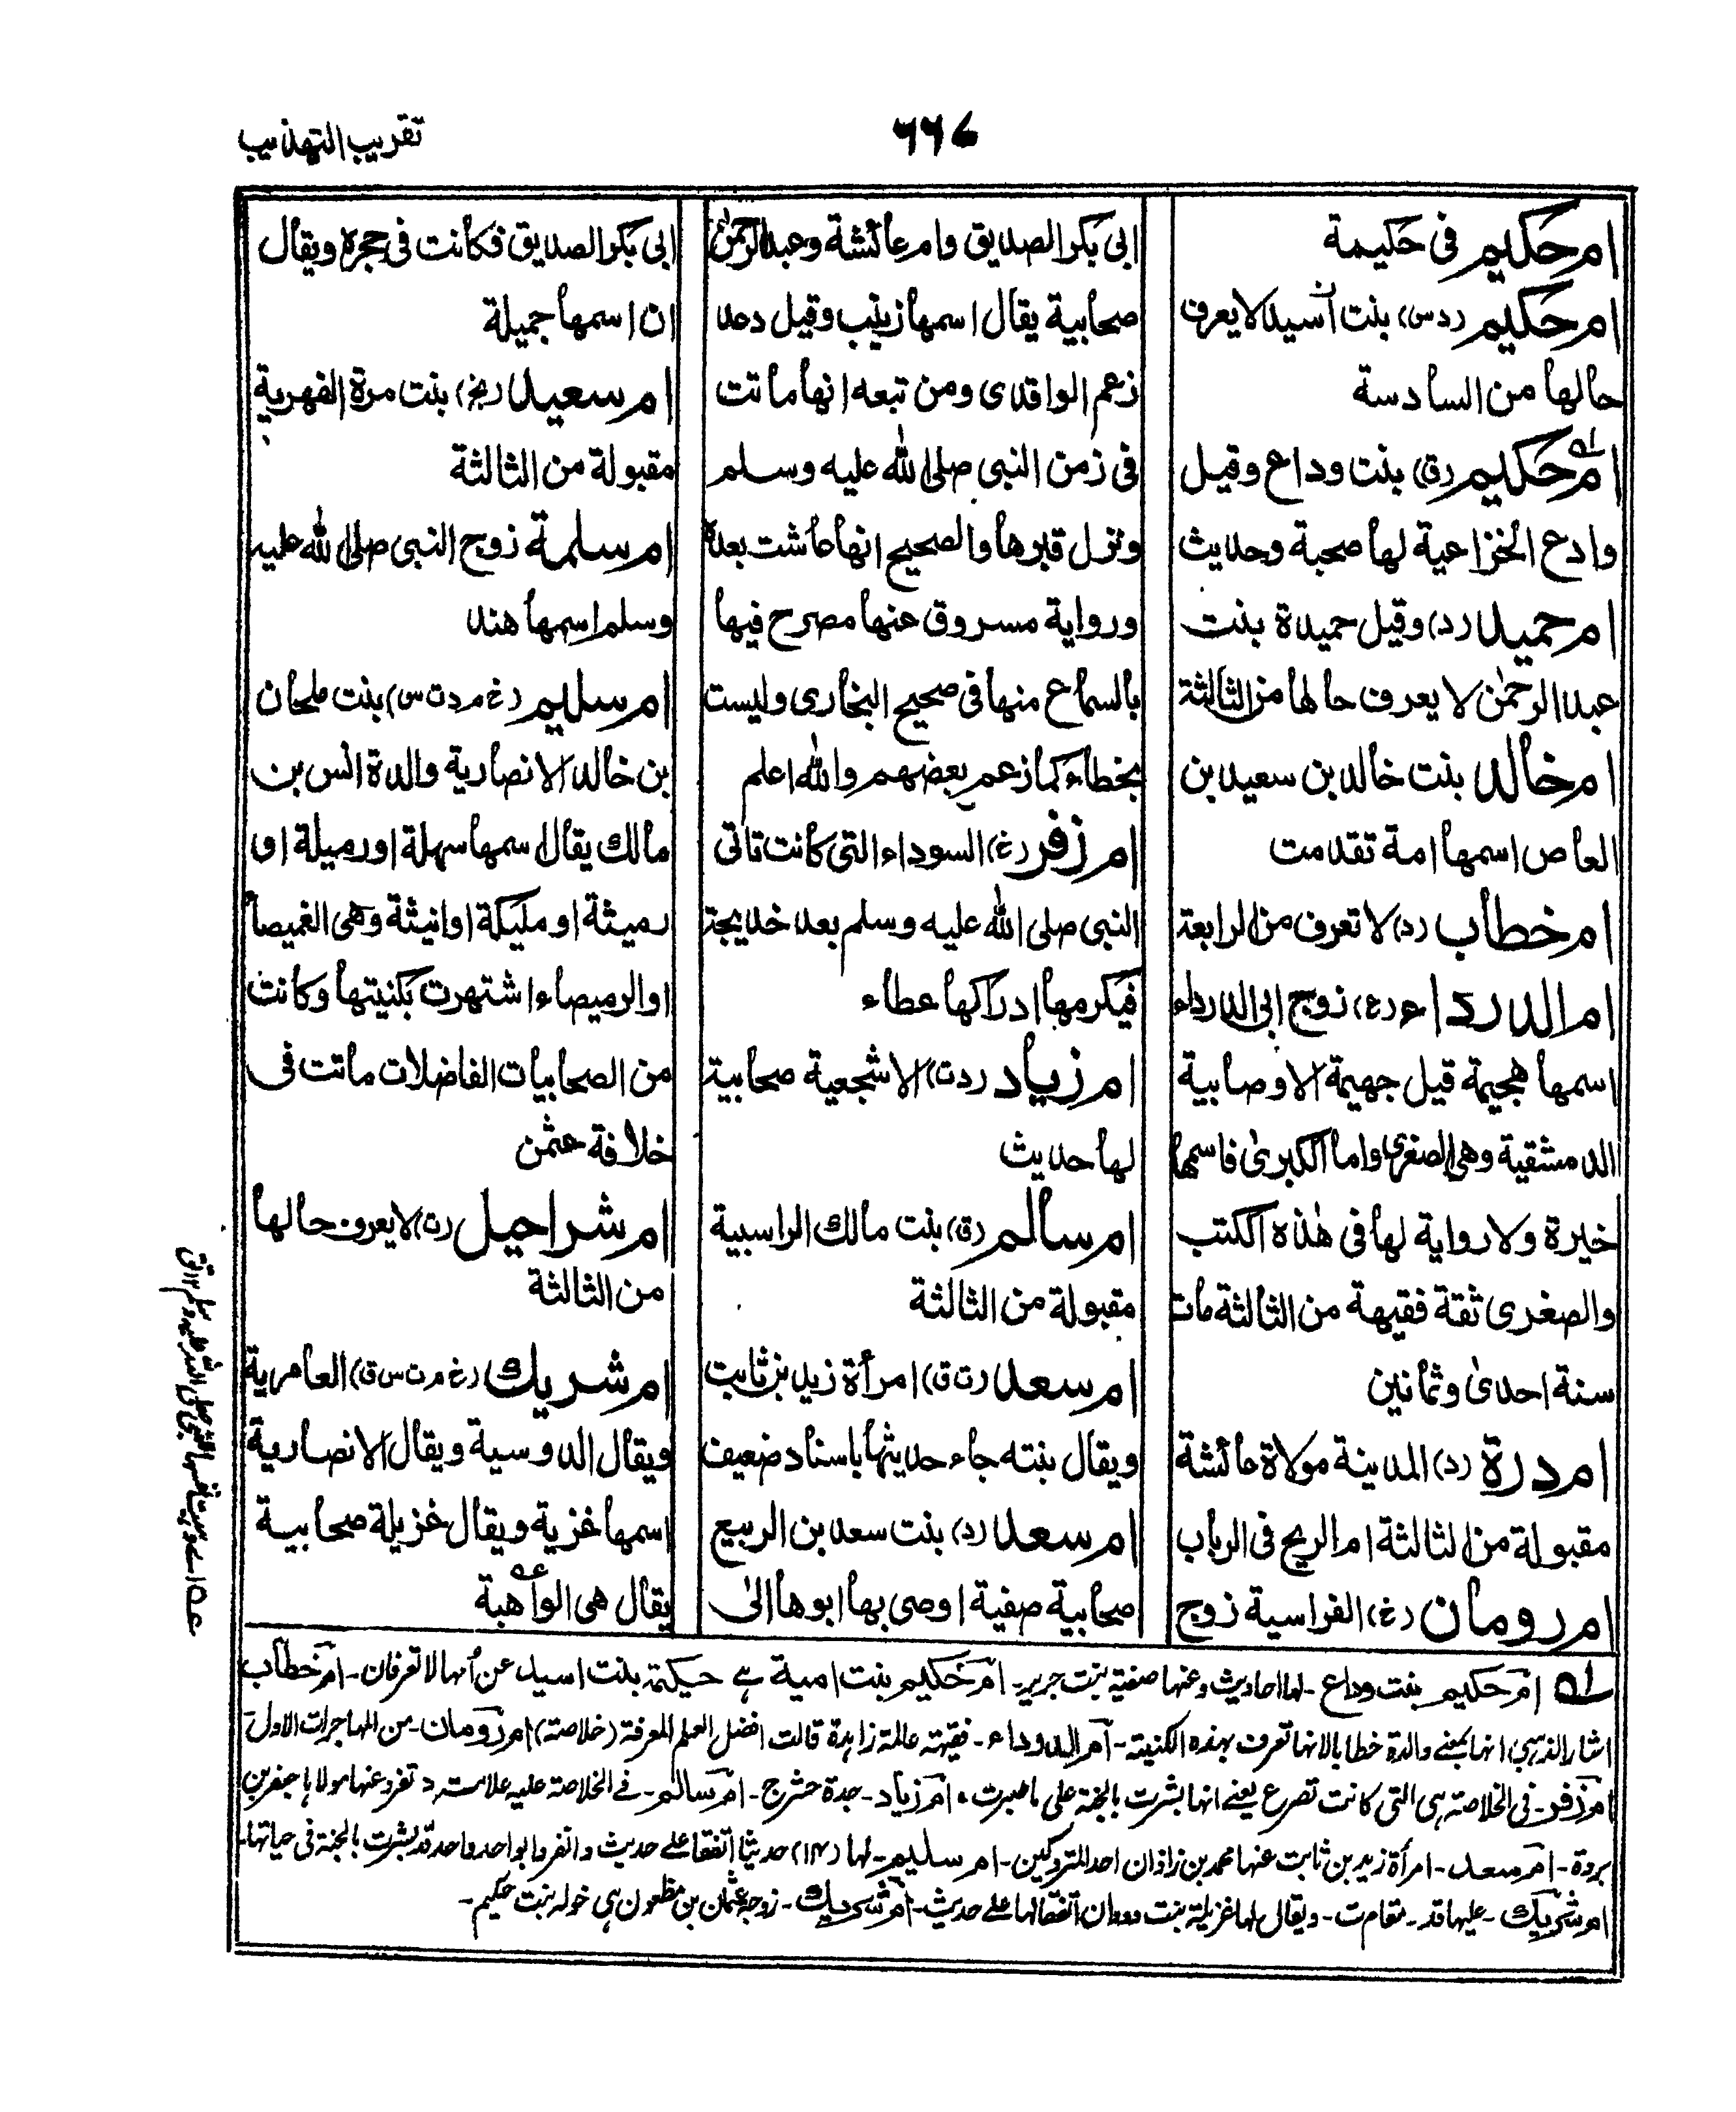 تقریب التهذیب
۶۶۷
ام حکیم فی حکیمة
ام حکیم (د س) بنت اسید لا یعرف
حالها من السادسة
ام حکیم (ق) بنت وداع وقیل
وادع الخزاعیة لها صحبة وحدیث
ام حمید (د) وقیل حمیدة بنت
عبد الرحمٰن لا یعرف حالها من الثالثة
ام خالد بنت خالد بن سعید بن
العاص اسمها امة تقدمت
ام خطاب (د) لا تعرف من الرابعة
ام الدرداء (ع) زوج ابی الدرداء
اسمها هجیمة قیل جهیمة الاوصابیة
الدمشقیة وهی الصغری واما الکبریٰ فاسمها
خیرة ولا روایة لها فی هٰذه الکتب
والصغری ثقة فقیهة من الثالثة مات
سنة احدیٰ وثمانین
ام درة (د) المدینة مولاة عائشة
مقبولة من الثالثة ام الریح فی الرباب
ام رومان (خ) الفراسیة زوج
ابی بکر الصدیق وام عائشة وعبد الرحمٰن
صحابیة یقال اسمها زینب وقیل دعد
زعم الواقدی ومن تبعه انها ماتت
فی زمن النبی صلی الله علیه وسلم
ونزل قبرها والصحیح انها عاشت بعده
وروایة مسروق عنها مصرح فیها
بالسماع منها فی صحیح البخاری ولیست
بخطاء کما زعم بعضهم والله اعلم
ام زفر (خ) السوداء التی کانت تاتی
النبی صلی الله علیه وسلم بعد خدیجة
فیکرمها ادراکها عطاء
ام زیاد (د ت) الاشجعیة صحابیة
لها حدیث
ام سالم (ق) بنت مالك الراسبیة
مقبولة من الثالثة
ام سعد (ت ق) امرأة زید بن ثابت
ویقال بنته جاء حدیثها باسناد ضعیف
ام سعد (د) بنت سعد بن الربیع
صحابیة صفیة اوصی بها ابوها الیٰ
ابی بکر الصدیق فکانت فی حجرة ویقال
ان اسمها جمیلة
ام سعید (بخ) بنت مرة الفهریة
مقبولة من الثالثة
ام سلمة زوج النبی صلی الله علیه
وسلم اسمها هند
ام سلیم (خ م د ت س) بنت ملحان
بن خالد الانصاریة والدة انس بن
مالك یقال اسمها سهلة او رمیلة او
رمیثة او ملیکة او انیثة وهی الغمیصاء
او الرمیصاء اشتهرت بکنیتها وکانت
من الصحابیات الفاضلات ماتت فی
خلافة عثمن
ام شراحیل (ت) لا یعرف حالها
من الثالثة
ام شریك (خ م ت س ق) العامریة
ویقال الدوسیة ویقال الانصاریة
اسمها غزیة ویقال غزیلة صحابیة
یقال هی الواهبة
ام حکیم بنت وداع - لها احادیث وعنها صفیة بنت جریر - ام حکیم بنت امیة ہے حیکمة بنت اسید عن امها لا تعرفان - ام خطاب
اشار الذہبی انها بمعنے والدة خطاب لا انها تعرف بهذه الکنیة - ام الدرداء - فقیہة عالمة زاہدة قالت افضل العلم المعرفة (خلاصة) ام رومان - من المهاجرات الاول
ام زفر - فی الخلاصة ہی التی کانت تصرع یعنے انها بشرت بالجنة علی ما صبرت - ام زیاد - جدة حشرج - ام سالم - فے الخلاصة علیه علامت د تفرد عنها مولاہا جعفر بن
بردة - ام سعد - امرأة زید بن ثابت عنها محمد بن زاذان احد المتروکین - ام سلیم - لها (۱۴) حدیثا اتفقا علے حدیث وانفردا بواحد واحد قد بشرت بالجنة فی حیاتها
ام شریك - علیها قد - ویقال لها غزیلة بنت دودان اتفقا لها علے حدیث - ام شریك - زوجة عثمان بن مظعون ہی خولة بنت حکیم -